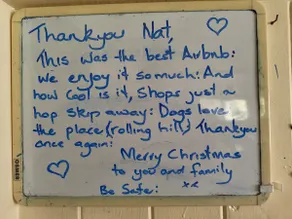 Thankyou Nat,
This was the best Airbnb:
we enjoy it so much: And
how cool is it, Shops just a
hop skip away: Dogs love
the place (rolling hill) Thankyou
once again:
Merry Christmas
to you and family
Be Safe: xx